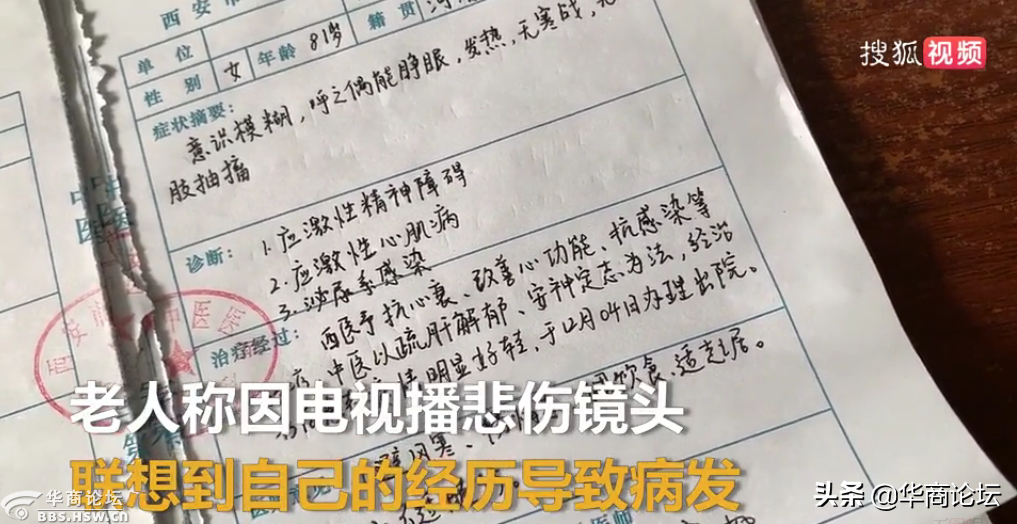 西安市
搜狐视频
单位
年龄 81岁
籍贯
性别 女
症状摘要：
意识模糊，呼之偶能睁眼，发热，无寒战，
肢抽搐
中
医医
诊断：
1. 应激性精神障碍
2. 应激性心肌病
3. 泌尿系感染
治疗经过：
西医予抗心衰、改善心功能、抗感染等
中医以疏肝解郁、安神定志为法，经治
明显好转，于12月04日办理出院。
饮食，适起居。
风寒、
老人称因电视播悲伤镜头
联想到自己的经历导致病发
华商论坛
BBS.HSW.cn
头条@华商论坛